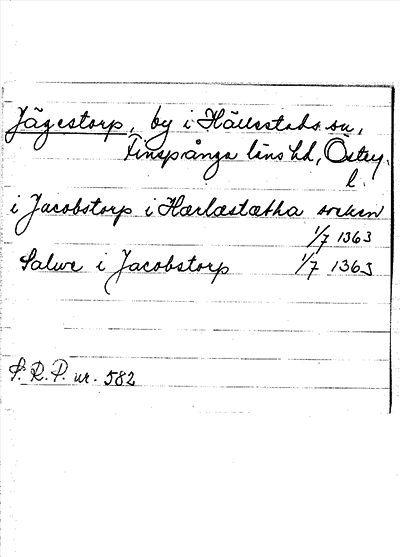 Jägestorp, by i Hällestads sn,
Finspånga läns hd, Östg.
l.
i Jacobstorp i Hærlæstatha sokn
1/7 1363
Salwe i Jacobstorp 1/7 1363
S. R. P. nr. 582